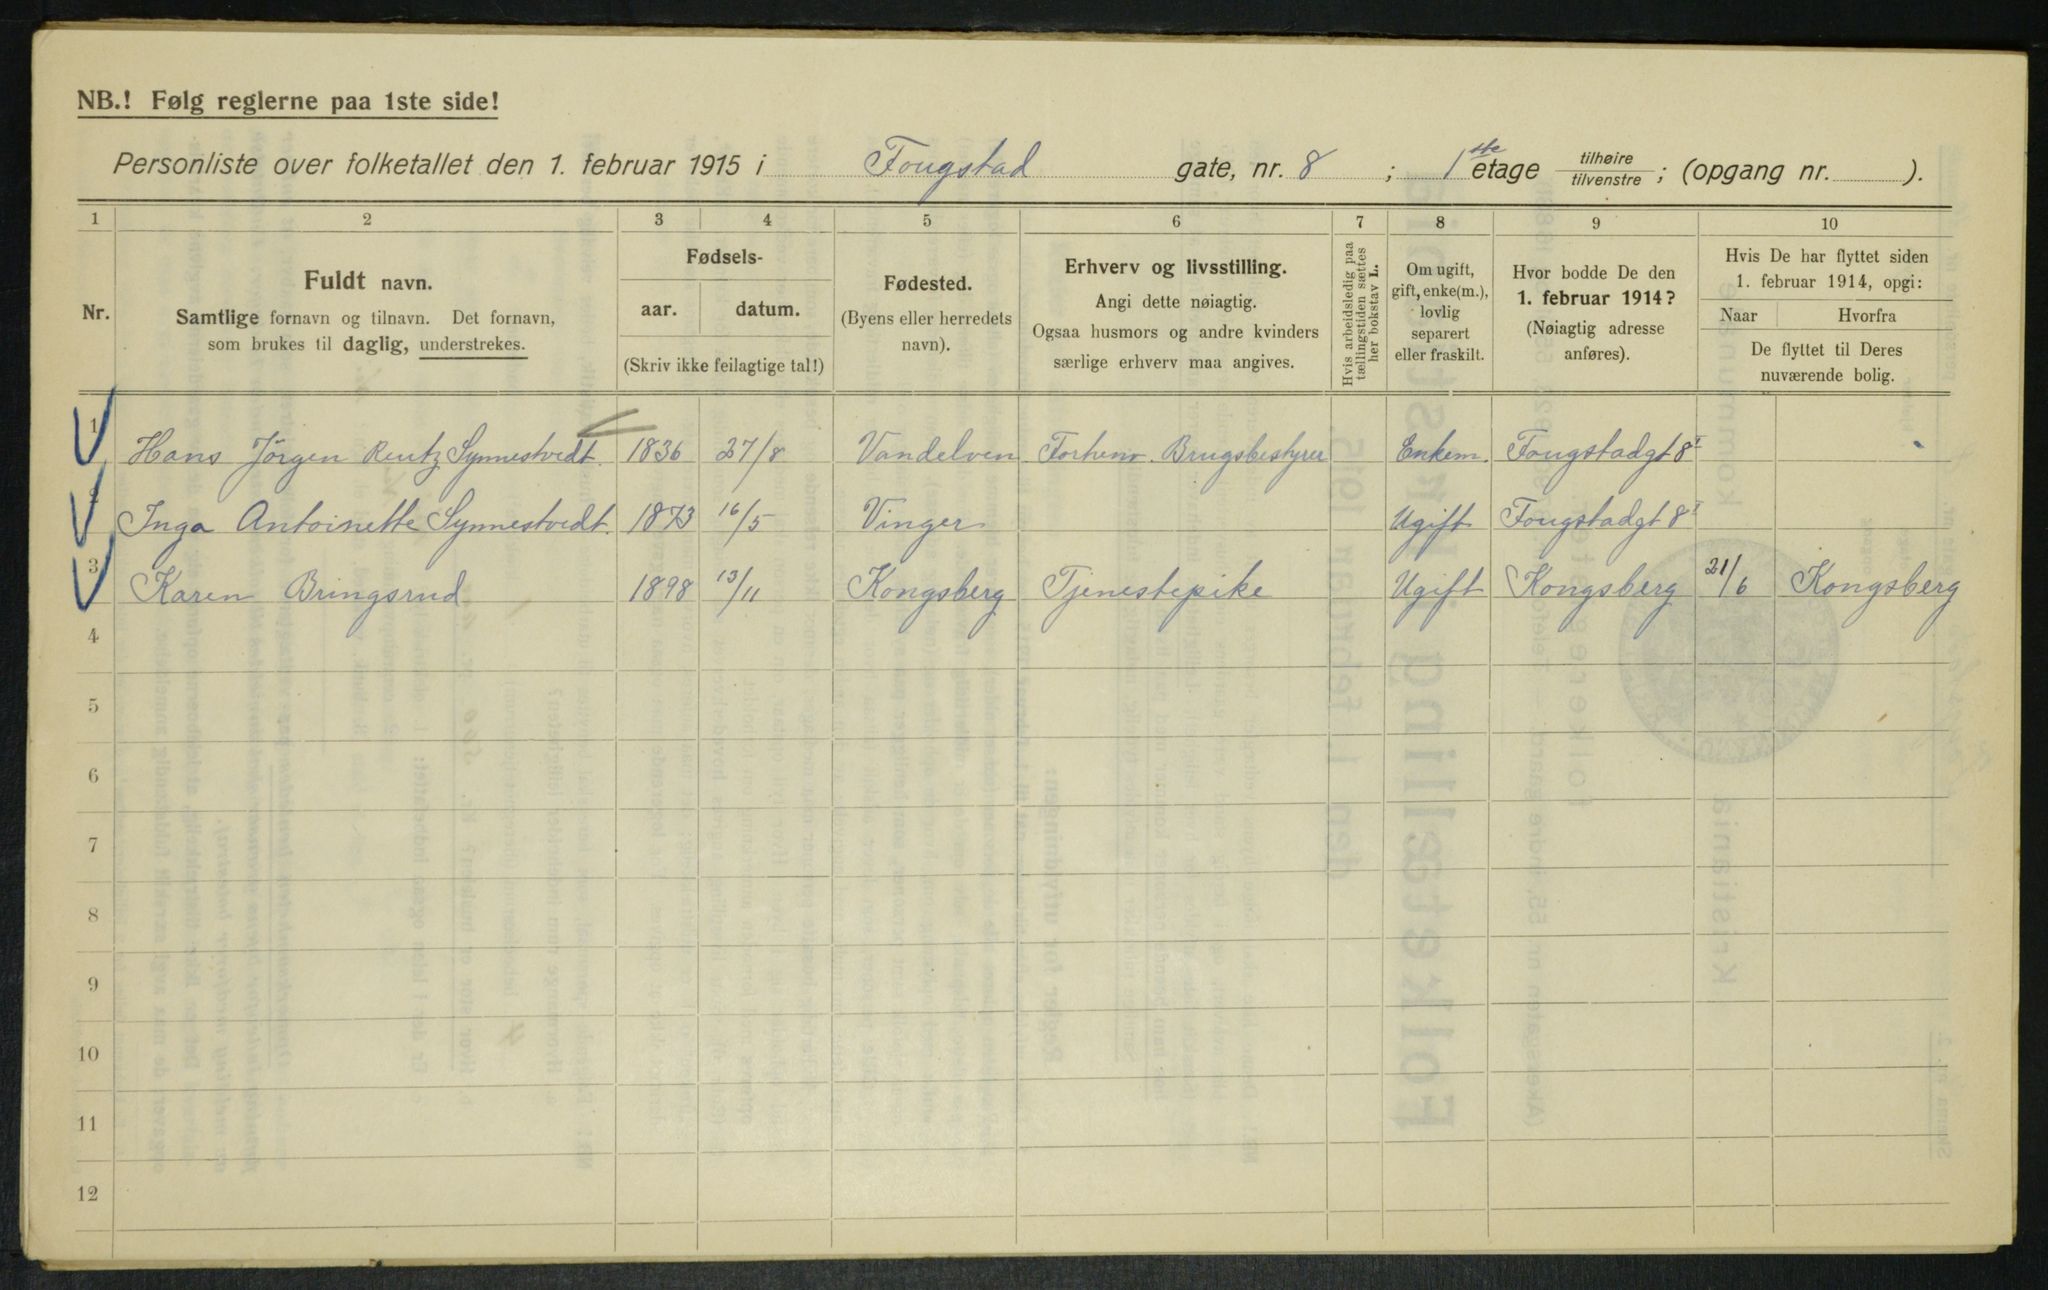 NB.! Følg reglerne paa 1ste side!
Personliste over folketallet den 1. februar 1915 i Fougstad gate, nr. 8 ; 1ste etage tilhøire tilvenstre ; (opgang nr. ).
1 2 3 4 5 6 7 8 9 10
Nr.
Fuldt navn.
Samtlige fornavn og tilnavn. Det fornavn,
som brukes til daglig, understrekes.
Fødsels-
aar. datum.
(Skriv ikke feilagtige tal!)
Fødested.
(Byens eller herredets
navn).
Erhverv og livsstilling.
Angi dette nøiagtig.
Ogsaa husmors og andre kvinders
særlige erhverv maa angives.
Hvis arbeidsledig paa
tællingstiden sættes
her bokstav L.
Om ugift,
gift, enke(m.),
lovlig
separert
eller fraskilt.
Hvor bodde De den
1. februar 1914?
(Nøiagtig adresse
anføres).
Hvis De har flyttet siden
1. februar 1914, opgi:
Naar Hvorfra
De flyttet til Deres
nuværende bolig.
1 Hans Jörgen Rentz Synnestvedt. 1836 27/8 Vandelven Forhenv. Brugsbestyrer Enkem. Fougstadgt 8 I
2 Inga Antoinette Synnestvedt. 1873 16/5 Vinger Ugift Fougstadgt 8 I
3 Karen Bringsrud 1898 13/11 Kongsberg Tjenestepike Ugift Kongsberg 21/6 Kongsberg
4
5
6
7
8
9
10
11
12